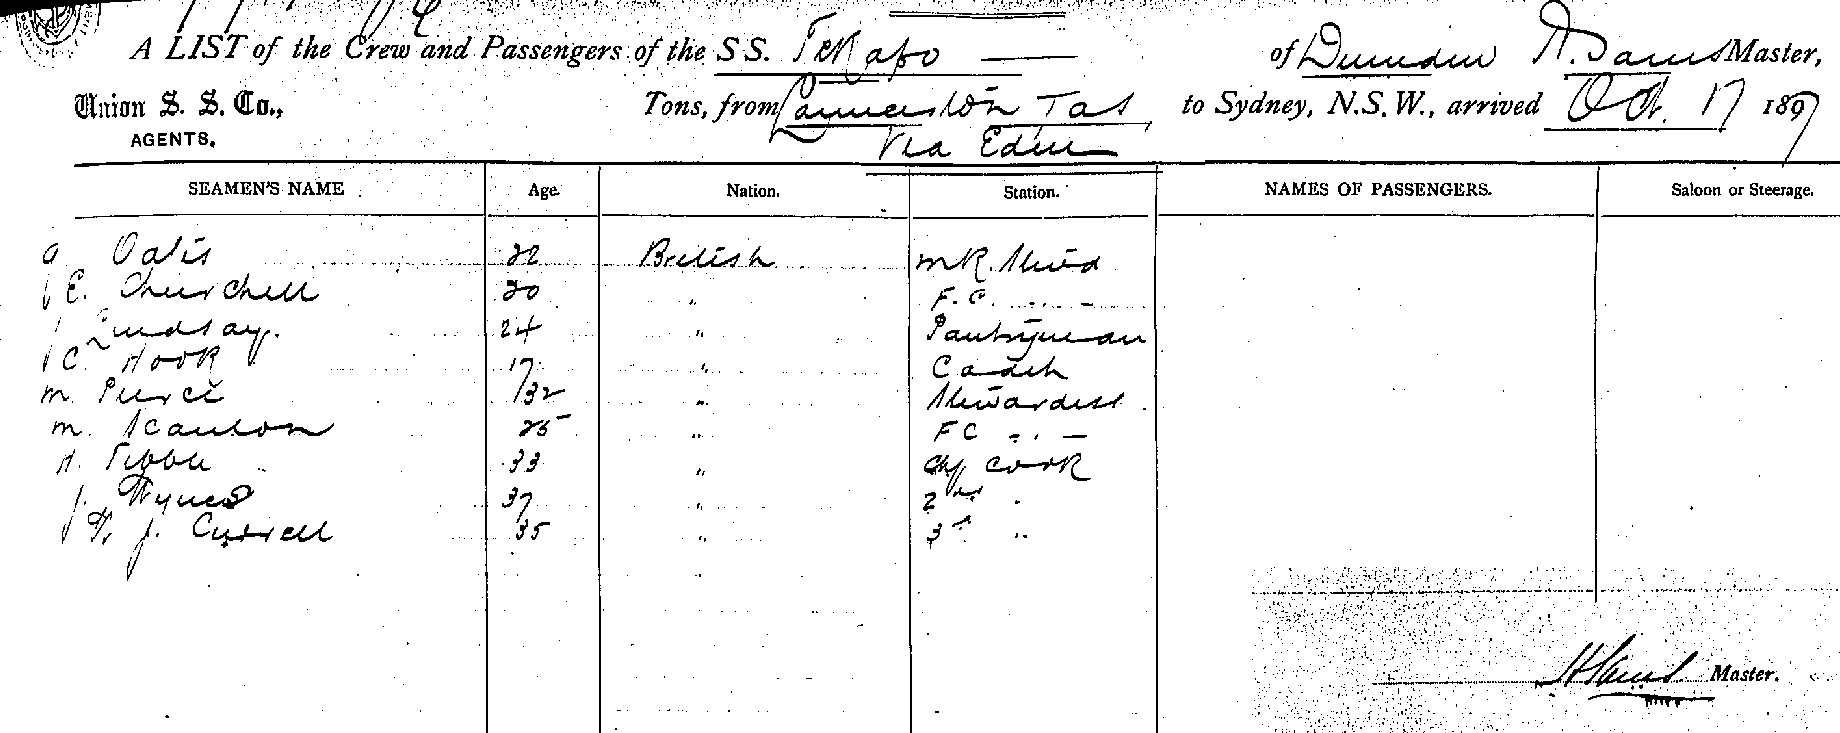 A LIST of the Crew and Passengers of the SS. Tekapo
of Dunedin Master,
Union S. S. Co.,
AGENTS.
Tons, from Launceston Tas to Sydney, N.S.W., arrived Oct. 17 1897
Via Eden
SEAMEN'S NAME Age. Nation. Station. NAMES OF PASSENGERS. Saloon or Steerage.
British
E. Churchill 20 " F.C.
Lindsay. 24 " Pantryman
C. Hook 17 "
M. Pierce 32 " Stewardess
M. Scanlon 25 " FC
33 " Cook
J. 37 " 2nd "
J. Currell 35 " 3rd "
"
Master.